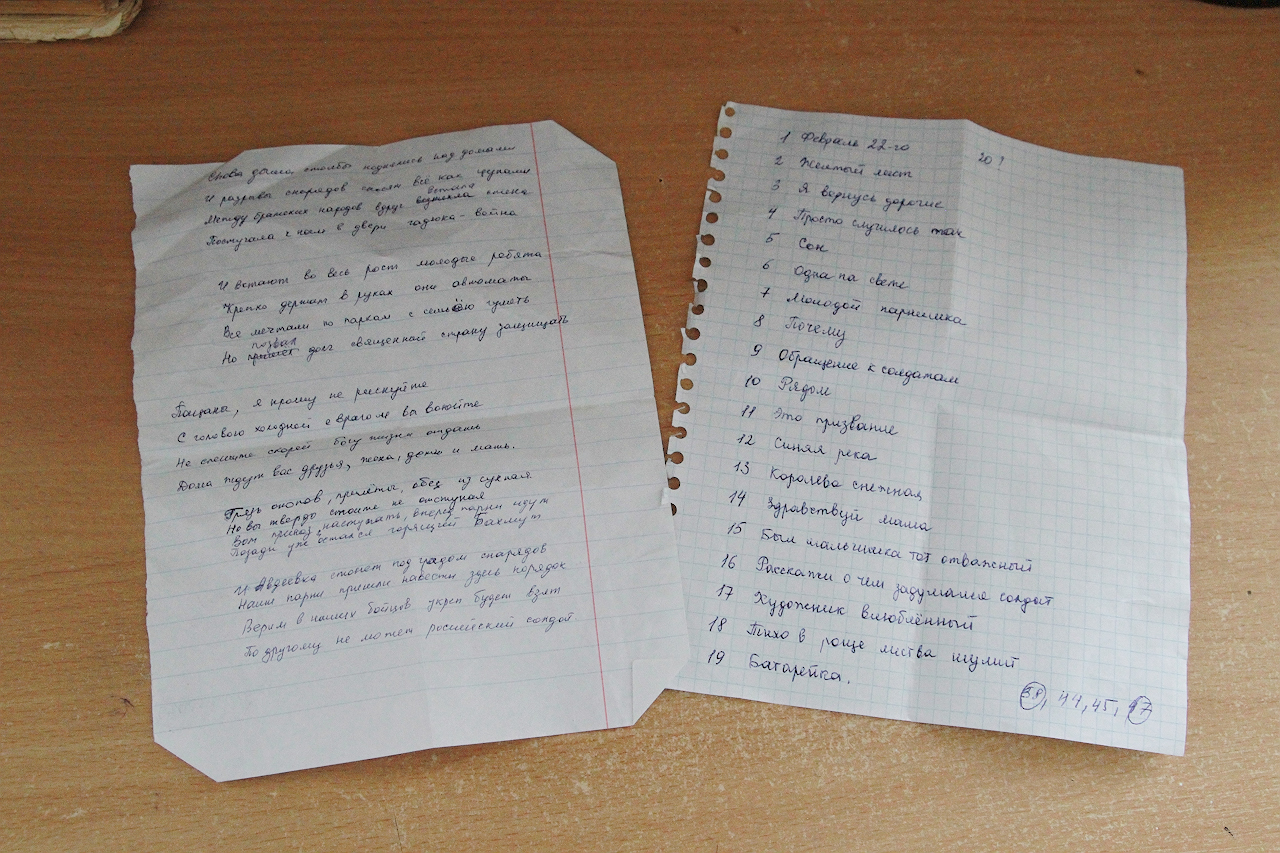 Снова дыма столбы поднялись над домами
И разрывы снарядов стали всё как цунами
встала
Между братских народов вдруг стена
Постучала к нам в двери гадюка-война
И встают во весь рост молодые ребята
Крепко держат в руках они автоматы
Все мечтали по паркам с семьёю гулять
позвал
Но долг священный страну защищать
Пацаны, я прошу не рискуйте
С головою холодной с врагом вы воюйте
Не спешите скорей богу жизни отдать
Дома ждут вас друзья, жена, дочь и мать.
Грязь окопов, прилёты, обед из сухпая
Но вы твердо стоите не отступая
Вот приказ наступать, вперед парни идут
Позади уже остался горящий Бахмут
И Авдеевка стонет под градом снарядов
Наши парни пришли навести здесь порядок
Верим в наших бойцов укреп будет взят
По другому не может российский солдат
1 Февраль 22-го
20?
2 Желтый лист
3 Я вернусь дорогие
4 Просто случилось так
5 Сон
6 Одна на свете
7 Молодой парнишка
8 Почему
9 Обращение к солдатам
10 Рядом
11 Это призвание
12 Синяя река
13 Королева снежная
14 Здравствуй мама
15 Был мальчишка тот отважный
16 Расскажи о чем задумался солдат
17 Художник влюблённый
18 Тихо в роще листва шумит
19 Батарейка.
38, 44, 45, 47